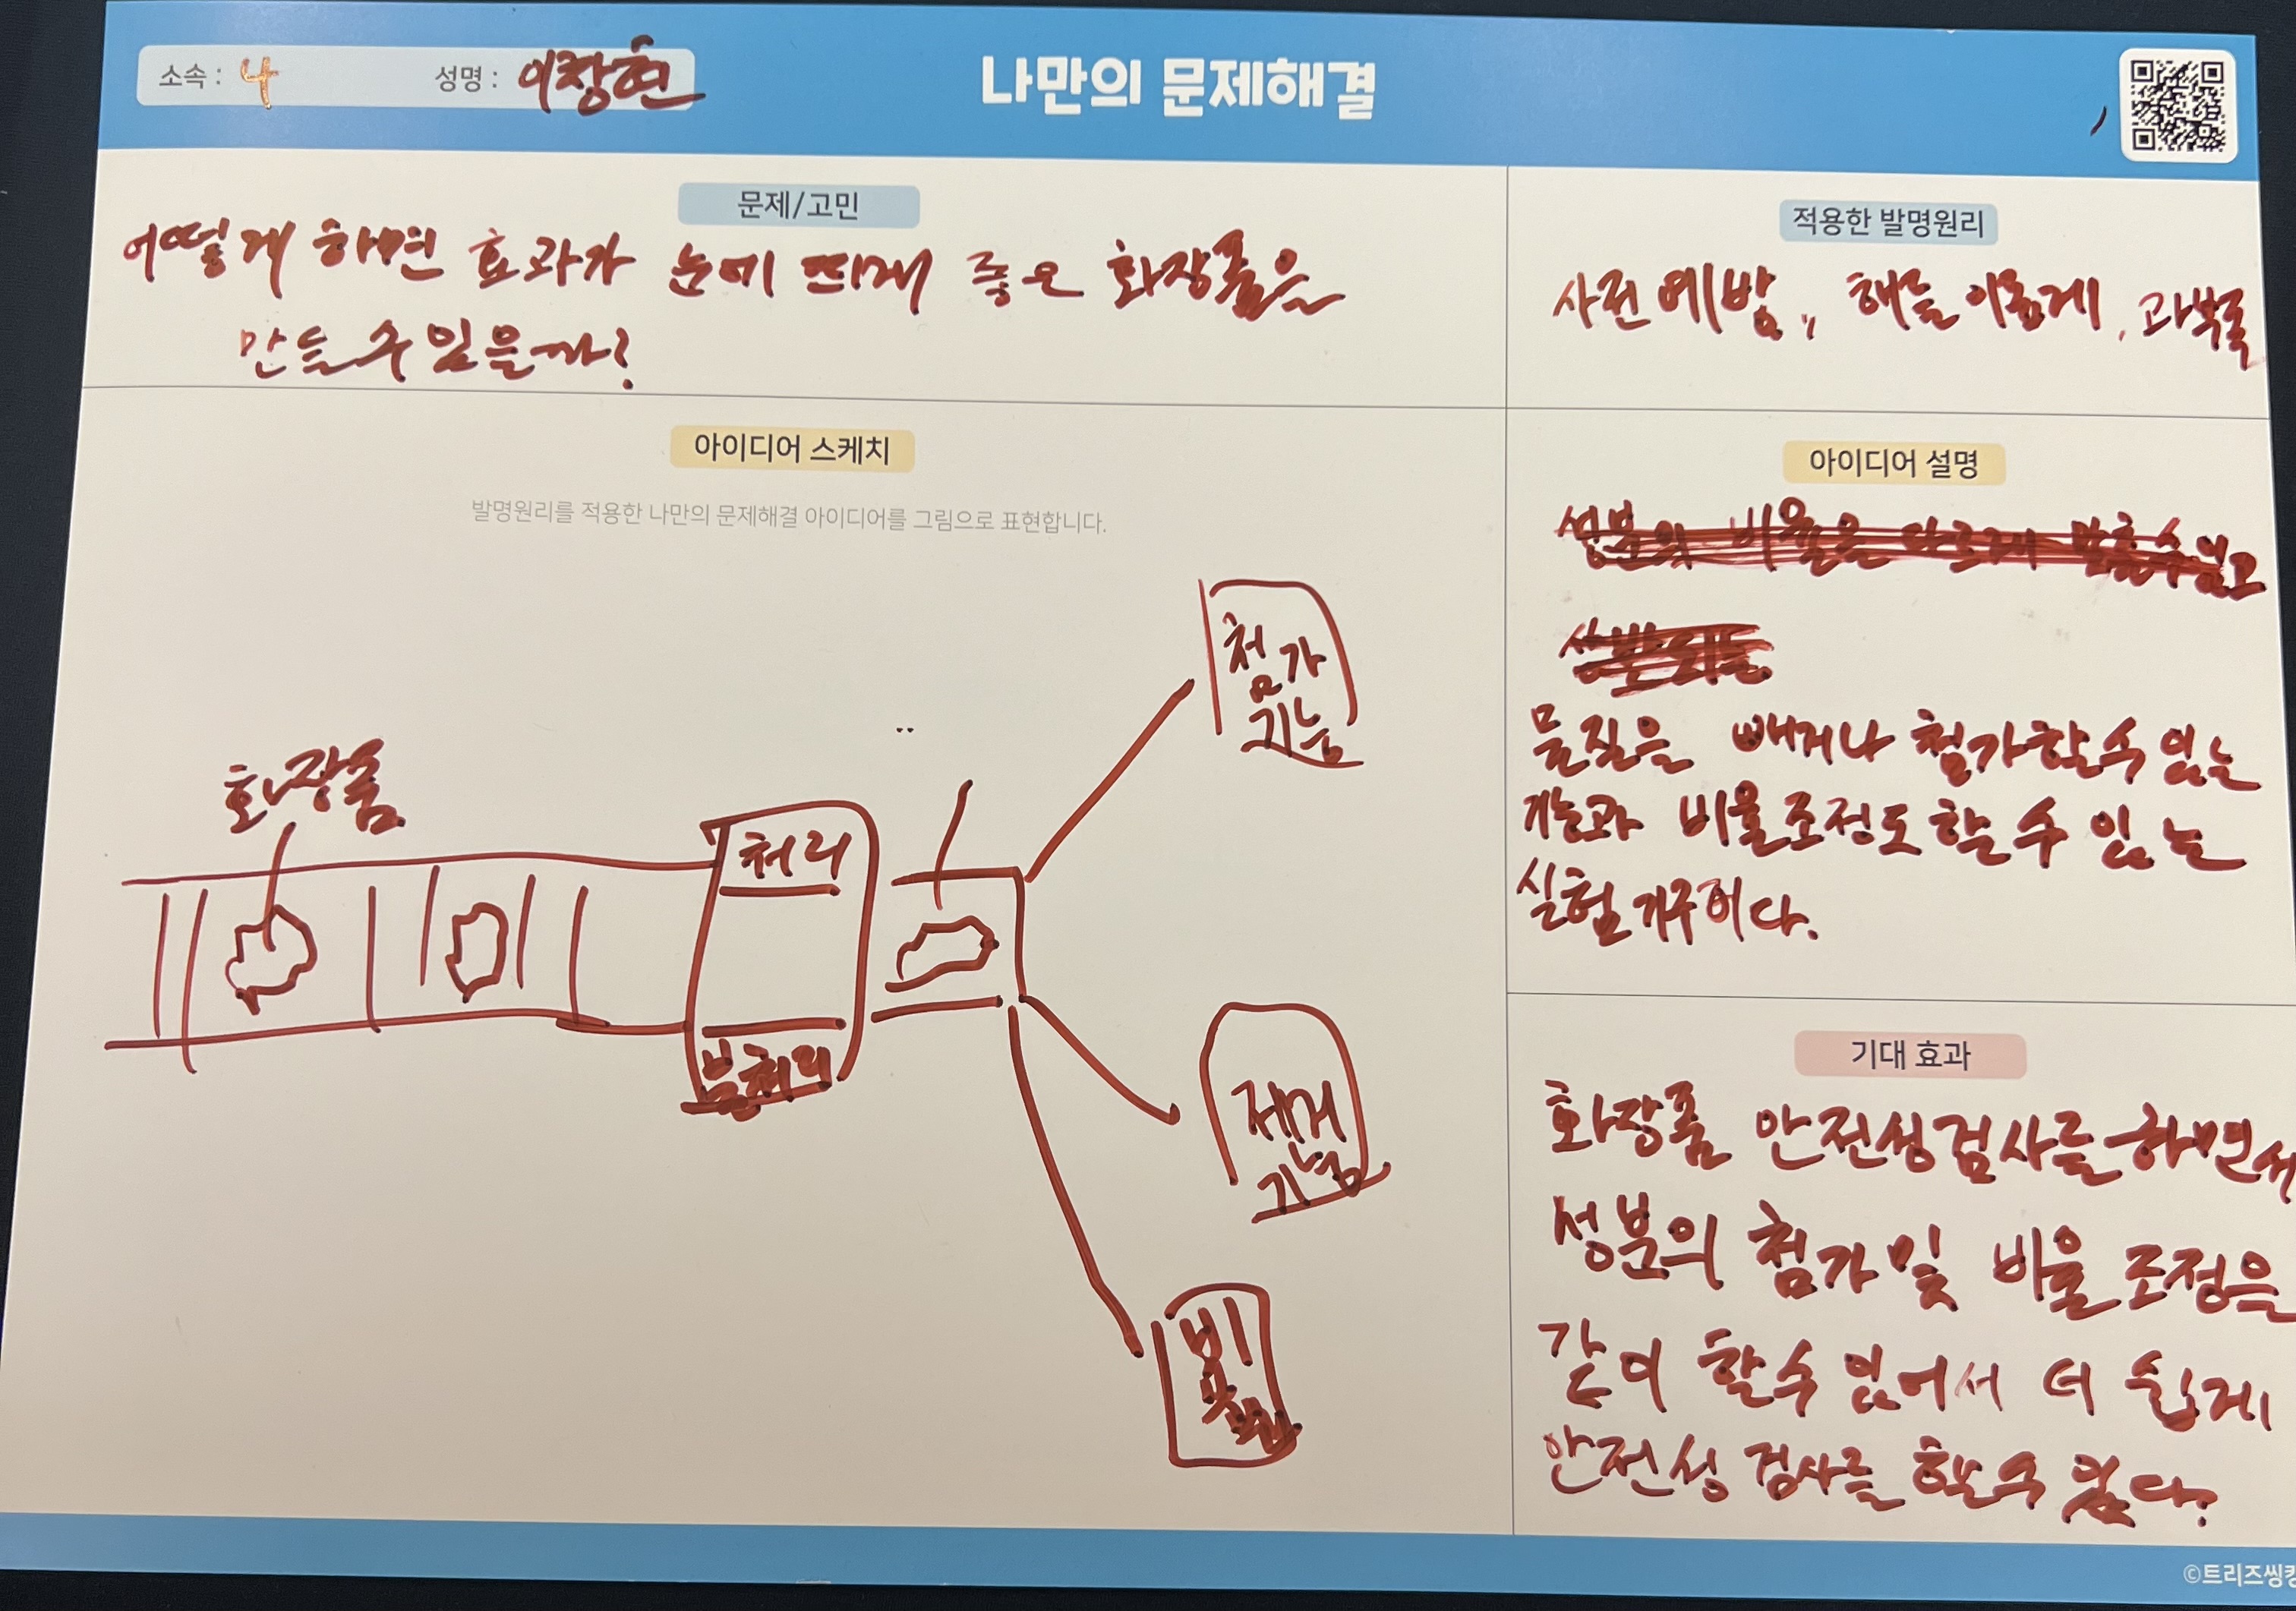 소속 : 4
성명 : 이창현
나만의 문제해결
문제/고민
어떻게 하면 효과가 눈에 띄게 좋은 화장품을
만들 수 있을까?
적용한 발명원리
사전예방, 해를 이롭게, 과부족
아이디어 스케치
발명원리를 적용한 나만의 문제해결 아이디어를 그림으로 표현합니다.
화장품
처리
불처리
첨가
기능
제거
기능
비
아이디어 설명
성분의 비율을 다르게 맞출수있고
물질을 빼거나 첨가할수 있는
기능과 비율조정도 할 수 있는
실험기구이다.
기대 효과
화장품 안전성검사를 하면서
성분의 첨가 및 비율 조정을
같이 할수 있어서 더 쉽게
안전성 검사를 할수 있다.
©트리즈씽킹